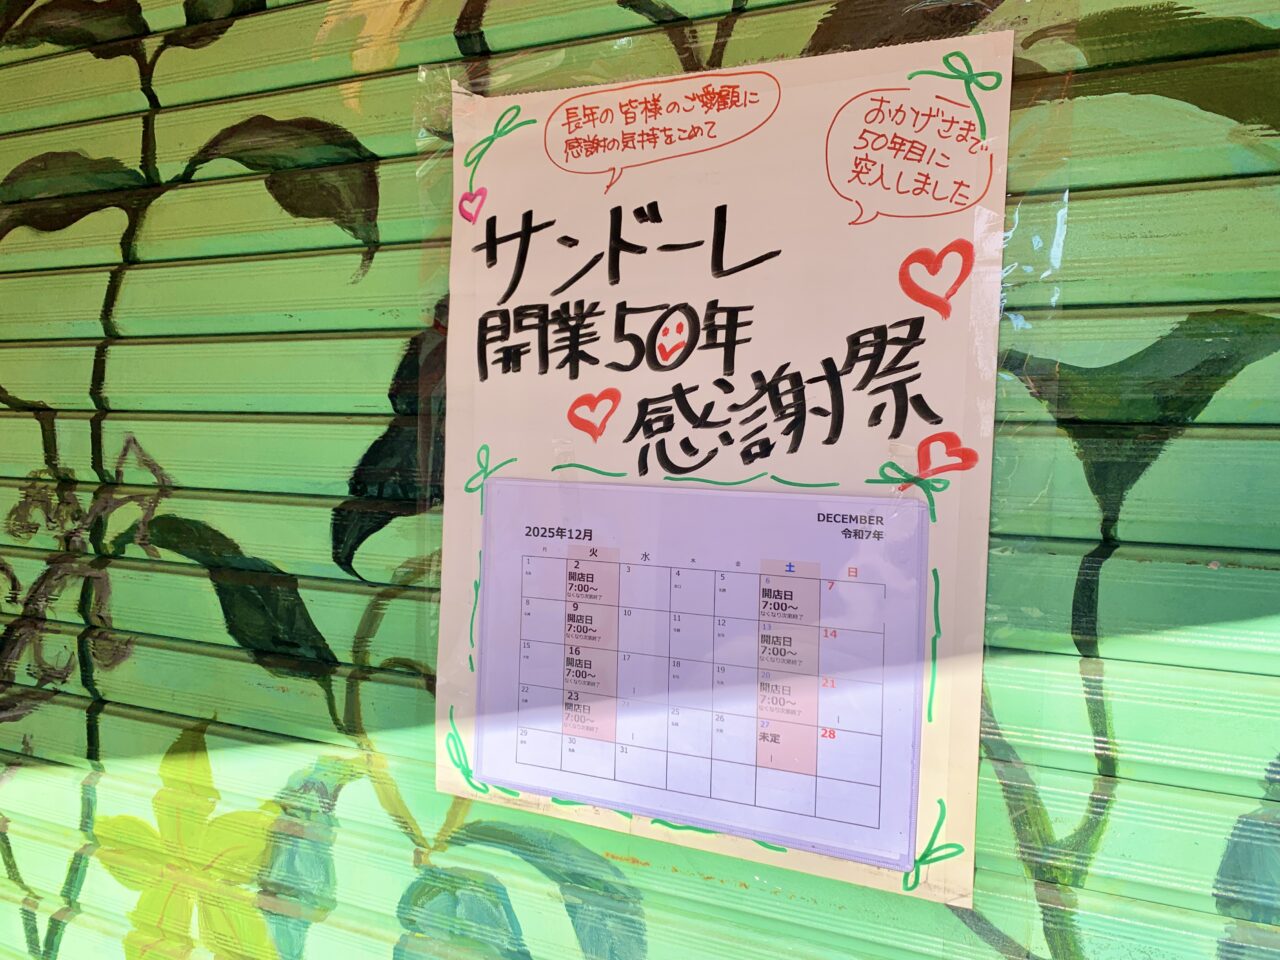 長年の皆様のご愛顧に
感謝の気持をこめて
おかげさまで
50年目に
突入しました
サンドーレ
開業50年
感謝祭
DECEMBER
2025年12月
令和7年
月 火 水 木 金 土 日
1 2 3 4 5 6 7
開店日 開店日
7:00～ 7:00～
なくなり次第終了 なくなり次第終了
8 9 10 11 12 13 14
開店日 開店日
7:00～ 7:00～
なくなり次第終了 なくなり次第終了
15 16 17 18 19 20 21
開店日 開店日
7:00～ 7:00～
なくなり次第終了 なくなり次第終了
22 23 24 25 26 27 28
開店日 未定
7:00～
なくなり次第終了
29 30 31